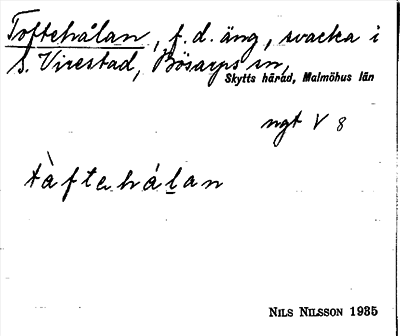 Toftehålan, f.d. äng, svacka i
S. Virestad, Bösarps sn,
Skytts härad, Malmöhus län
ngt V 8
tàftehálan
NILS NILSSON 1935